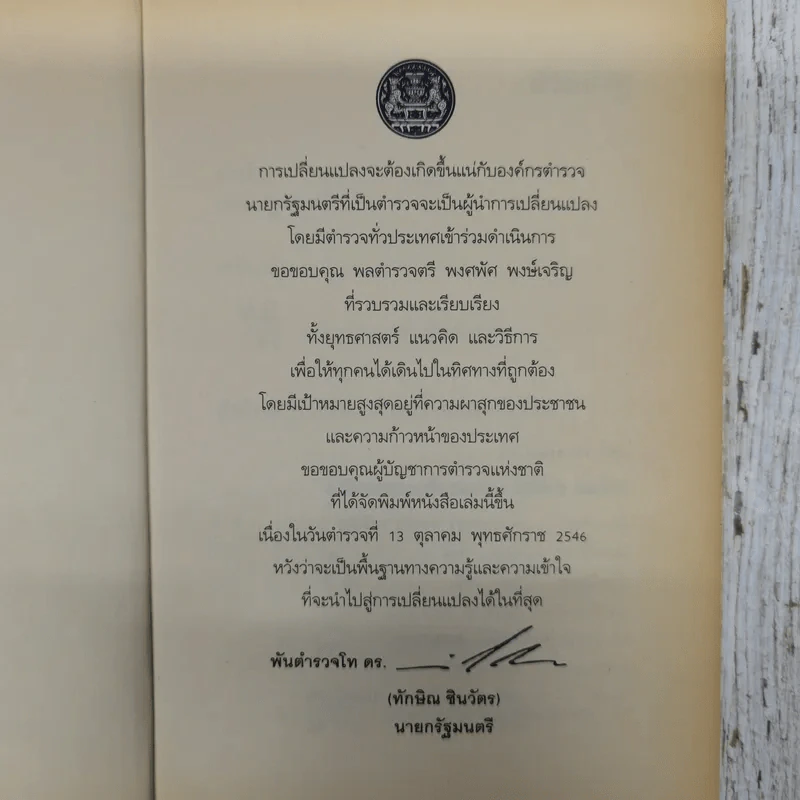 การเปลี่ยนแปลงจะต้องเกิดขึ้นแน่กับองค์กรตำรวจ
นายกรัฐมนตรีที่เป็นตำรวจจะเป็นผู้นำการเปลี่ยนแปลง
โดยมีตำรวจทั่วประเทศเข้าร่วมดำเนินการ
ขอขอบคุณ พลตำรวจตรี พงศพัศ พงษ์เจริญ
ที่รวบรวมและเรียบเรียง
ทั้งยุทธศาสตร์ แนวคิด และวิธีการ
เพื่อให้ทุกคนได้เดินไปในทิศทางที่ถูกต้อง
โดยมีเป้าหมายสูงสุดอยู่ที่ความผาสุกของประชาชน
และความก้าวหน้าของประเทศ
ขอขอบคุณผู้บัญชาการตำรวจแห่งชาติ
ที่ได้จัดพิมพ์หนังสือเล่มนี้ขึ้น
เนื่องในวันตำรวจที่ 13 ตุลาคม พุทธศักราช 2546
หวังว่าจะเป็นพื้นฐานทางความรู้และความเข้าใจ
ที่จะนำไปสู่การเปลี่ยนแปลงได้ในที่สุด
พันตำรวจโท ดร.
(ทักษิณ ชินวัตร)
นายกรัฐมนตรี